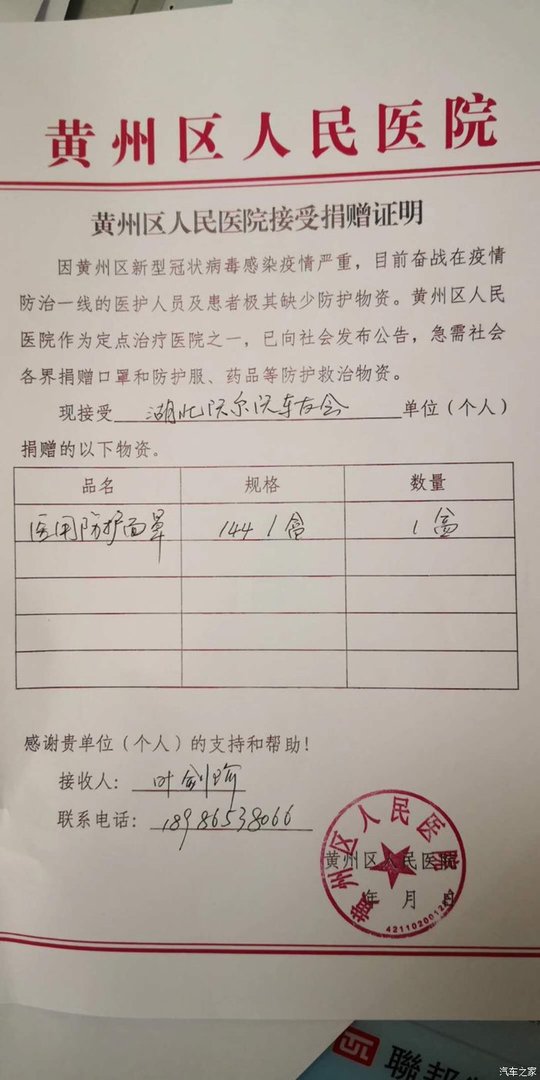 黄州区人民医院
黄州区人民医院接受捐赠证明
因黄州区新型冠状病毒感染疫情严重，目前奋战在疫情
防治一线的医护人员及患者极其缺少防护物资。黄州区人民
医院作为定点治疗医院之一，已向社会发布公告，急需社会
各界捐赠口罩和防护服、药品等防护救治物资。
现接受 湖北阮尔阮车友会 单位（个人）
捐赠的以下物资。
品名 规格 数量
医用防护面罩 144/盒 1盒
感谢贵单位（个人）的支持和帮助！
接收人：叶剑
联系电话：18986538066
黄州区人民医院
黄州区人民医院
年 月 日
聯邦
汽车之家